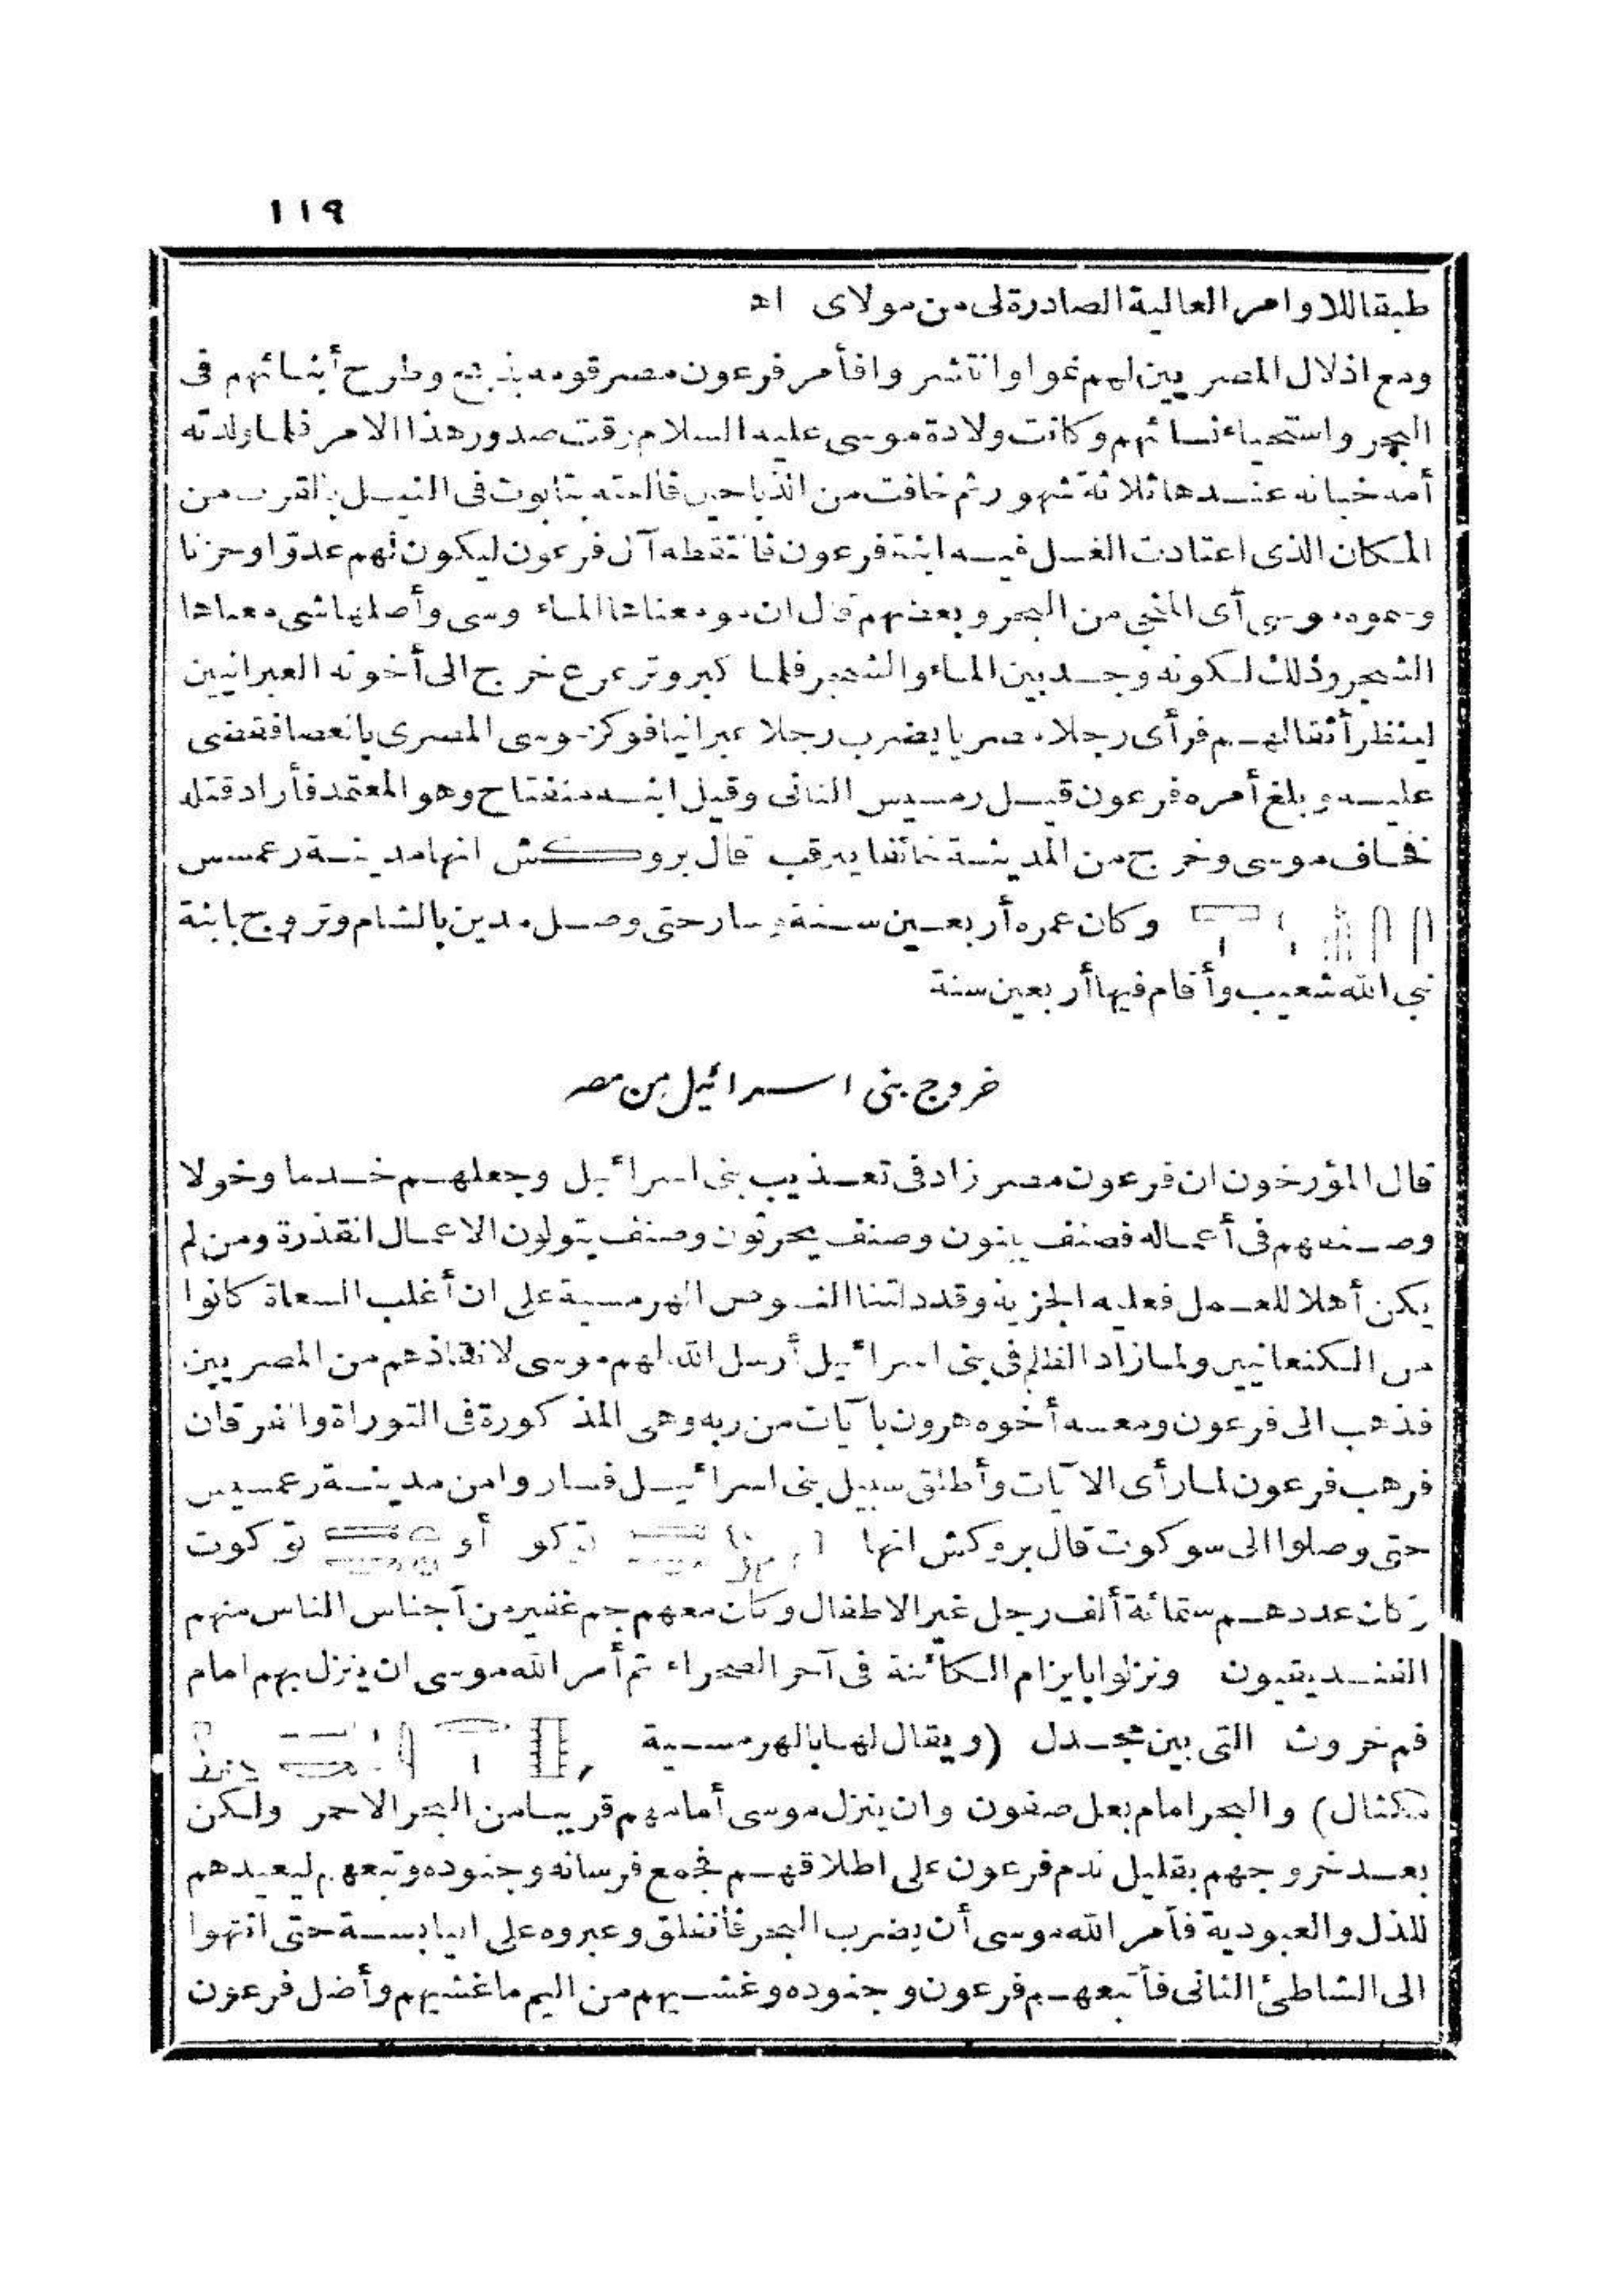 ١١٩
طبقا للاوامر العالية الصادرة لى من مولاى اه
ومع اذلال المصريين لهم نموا وانتشروا فأمر فرعون مصر قومه بذبح وطرح أبنائهم فى
البحر واستحياء نسائهم وكانت ولادة موسى عليه السلام وقت صدور هذا الامر فلما ولدته
أمه خبأته عندها ثلاثة شهور ثم خافت من الذباحين فألقته بتابوت فى النيل بالقرب من
المكان الذى اعتادت الغسل فيه ابنة فرعون فالتقطه آل فرعون ليكون لهم عدوّا وحزنا
وسموه موسى أى المنجى من البحر وبعضهم قال ان مو معناها الماء وسى وأصلها شى معناها
الشجر وذلك لكونه وجد بين الماء والشجر فلما كبر وترعرع خرج الى أخوته العبرانيين
لينظر أثقالهم فرأى رجلا مصريا يضرب رجلا عبرانيا فوكز موسى المصرى بالعصا فقضى
عليه وبلغ أمره فرعون قيل رمسيس الثانى وقيل ابنه منفتاح وهو المعتمد فأراد قتله
فخاف موسى وخرج من المدينة خائفا يترقب قال بروكش انها مدينة رعمسس
وكان عمره أربعين سنة وسار حتى وصل مدين بالشام وتزوج بابنة
نبى الله شعيب وأقام فيها أربعين سنة
خروج بنى اسرائيل من مصر
قال المؤرخون ان فرعون مصر زاد فى تعذيب بنى اسرائيل وجعلهم خدما وخولا
وصنفهم فى أعماله فصنف يبنون وصنف يحرثون وصنف يتولون الاعمال القذرة ومن لم
يكن أهلا للعمل فعليه الجزية وقد دلتنا النصوص الهرمسية على ان أغلب السعاة كانوا
من الكنعانيين ولما زاد الظلم فى بنى اسرائيل أرسل الله لهم موسى لانقاذهم من المصريين
فذهب الى فرعون ومعه أخوه هرون بآيات من ربه وهى المذكورة فى التوراة والفرقان
فرهب فرعون لما رأى الآيات وأطلق سبيل بنى اسرائيل فساروا من مدينة رعمسيس
حتى وصلوا الى سوكوت قال بروكش انها توكو أو توكوت
وكان عددهم ستمائة ألف رجل غير الاطفال وكان معهم جم غفير من أجناس الناس منهم
الفنديقيون ونزلوا بايزام الكائنة فى آخر الصحراء ثم أمر الله موسى ان ينزل بهم امام
فم خروث التى بين مجدل (ويقال لها بالهرمسية
مكتال) والبحر امام بعل صفون وان ينزل موسى أمامهم قريبا من البحر الاحمر ولكن
بعد خروجهم بقليل ندم فرعون على اطلاقهم فجمع فرسانه وجنوده وتبعهم ليعيدهم
للذل والعبودية فأمر الله موسى أن يضرب البحر فانفلق وعبروه على اليابسة حتى انتهوا
الى الشاطئ الثانى فأتبعهم فرعون وجنوده وغشيهم من اليم ما غشيهم وأضل فرعون